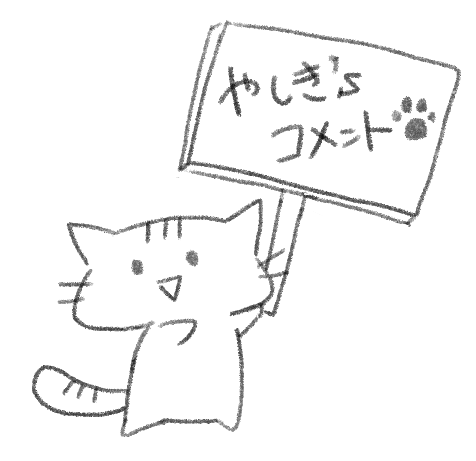 やしき's
コメント